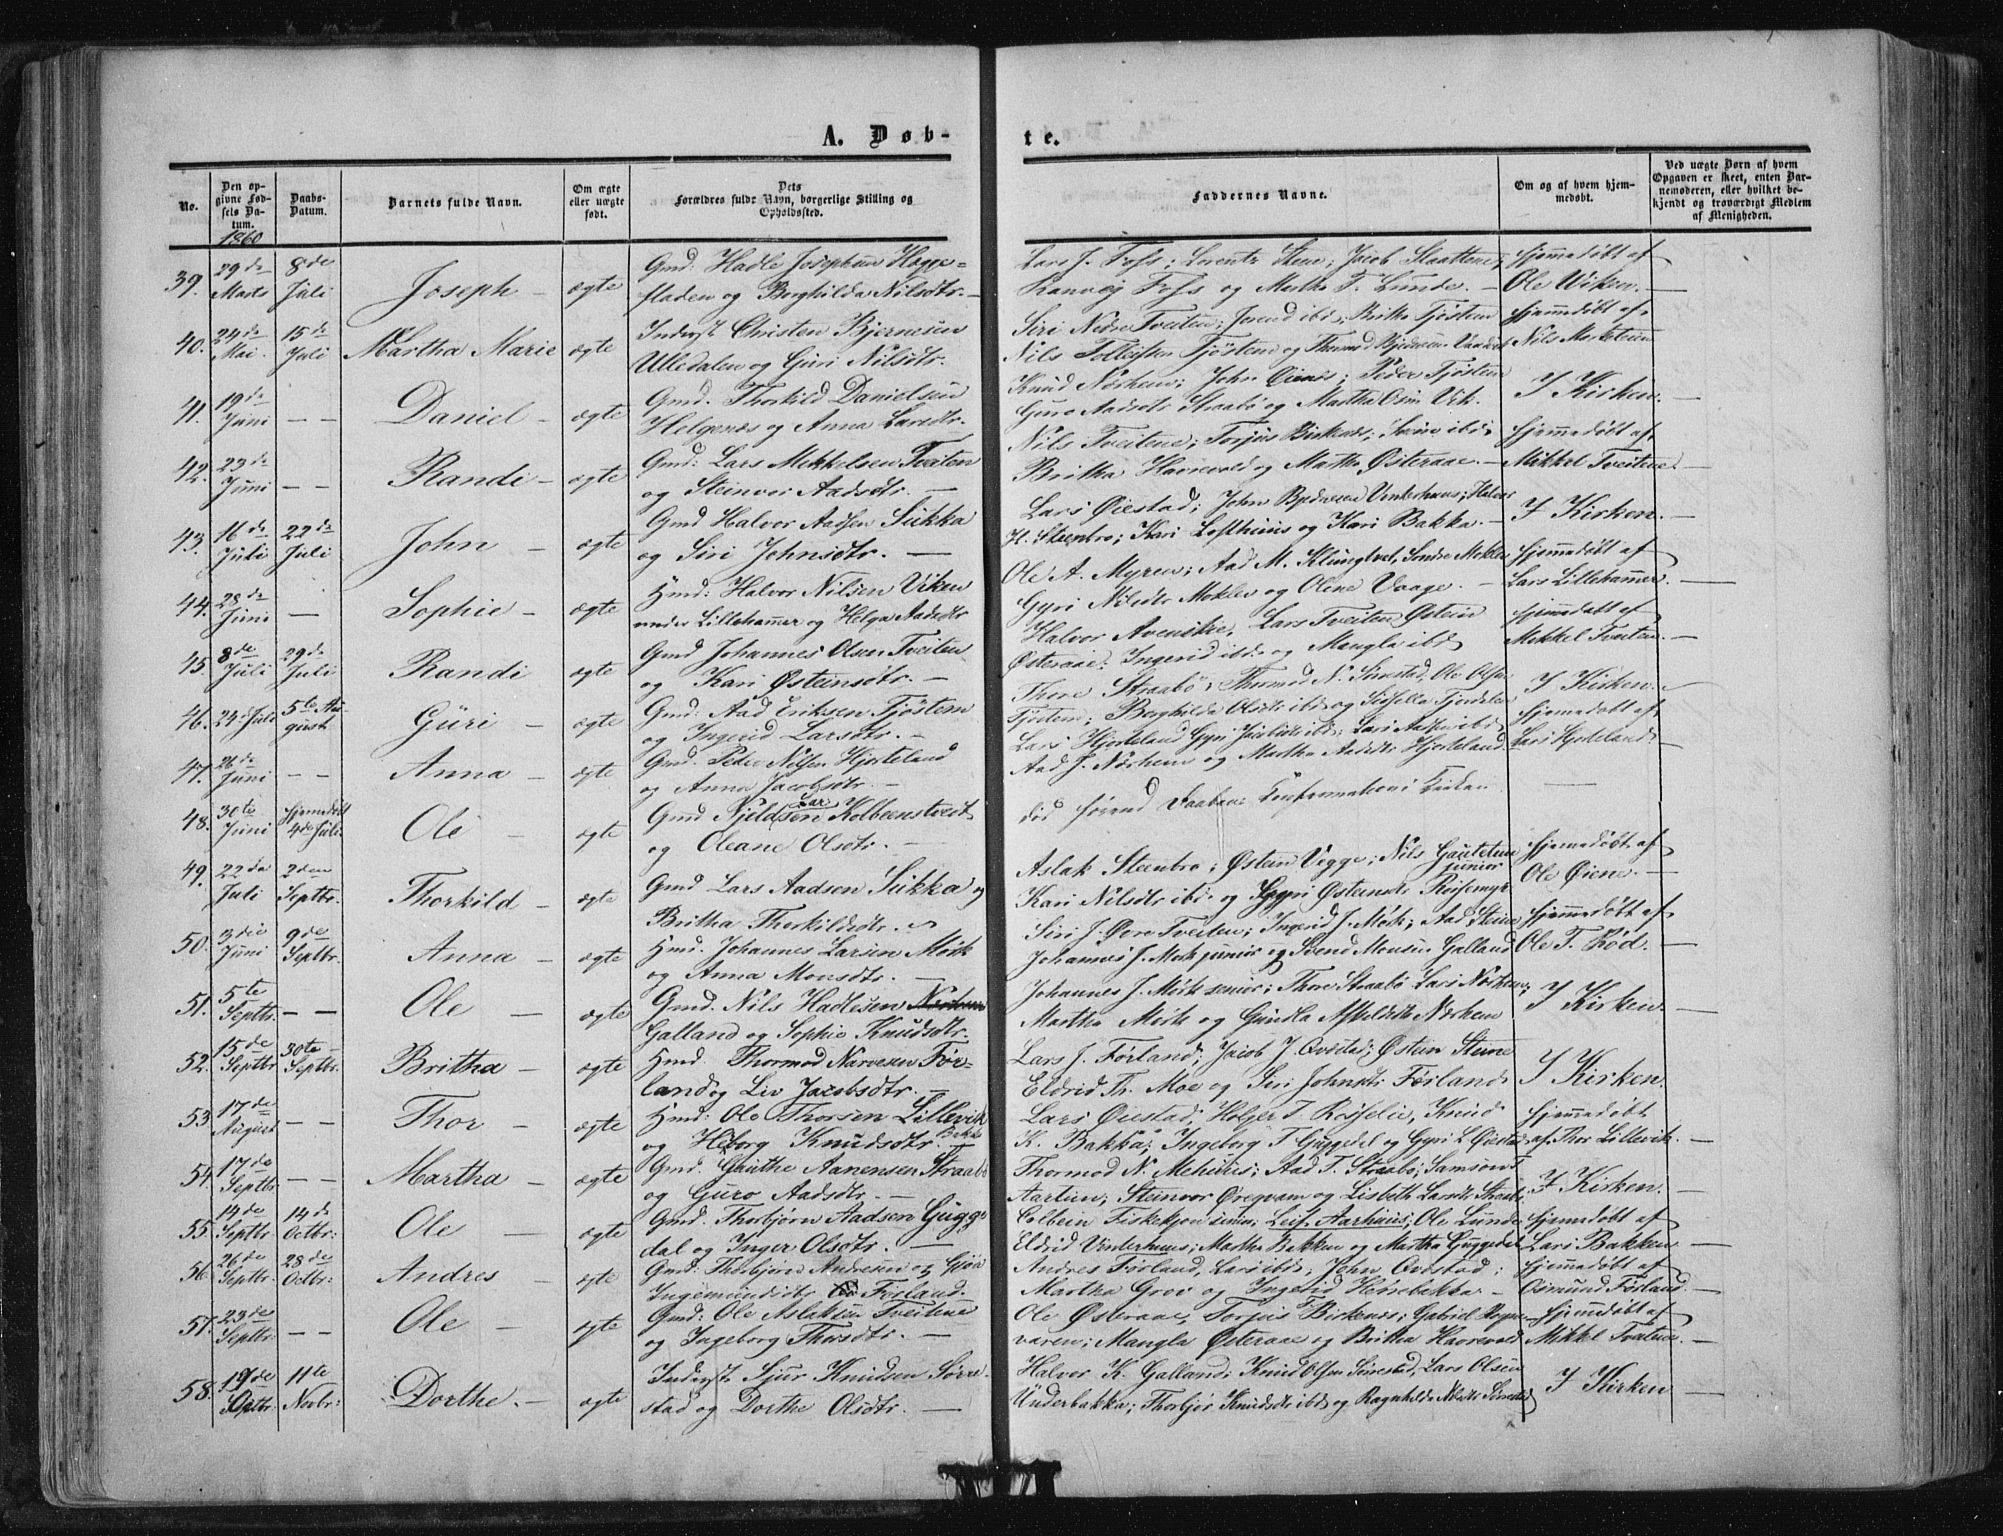 A. Døb-
te.
No.
Den opgivne Fødsels Datum.
Daabs-Datum.
Barnets fulde Navn.
Om ægte eller uægte født.
Dets Forældres fulde Navn, borgerlige Stilling og Opholdssted.
Faddernes Navne.
Om og af hvem hjemmedøbt.
Ved uægte Børn af hvem Opgaven er skeet, enten Barnemoderen, eller hvilket bekjendt og troværdigt Medlem af Menigheden.
1860
39. 29de Marts 8de Juli Joseph – ægte Gmd: Hadle Josephsen
og Borghilda Nilsdtr. –
Lars J. Foss; Lorentz Stene; Jacob
Ranvei Foss og Martha T. Lunde. –
Hjemmedøbt af
Ole Viken. –
40. 24de Mai. 15de Juli Martha Marie ægte Inderst Christen Bjernesen
Ulledalen og Guri Nilsdtr.
Siri Nedre Tveiten; ibd; Britha Tjøstem
Nils Tollefsen Tjøstem og Thormod
Hjemmedøbt af
Nils
41. 19de Juni – – Daniel – ægte Gmd. Thorkild Danielsen
Helgenæs og Anna Larsdtr. –
Knud Nørhem; John Øiene; Peder Tjøstem
Guro Aadsdtr Straabø og Martha Vik.
I Kirken. –
42. 23de Juni – – Randi – ægte Gmd: Lars Mekkelsen Tveiten
og Steinvor Aadsdtr. –
Nils Tveitene; Torjus Birkenes; ibd;
Britha Havrevold og Martha Østeraae. –
Hjemmedøbt af
Mikkel Tveitene. –
43. 16de Juli 22de Juli John – ægte Gmd Halvor Aadsen Sukka
og Siri Johnsdtr. –
Lars Øiestad; John Vinterhuus; Halvor
H. Steenbro; Kari Lofthuus og Kari Bakka. –
I Kirken. –
44. 28de Juni – Sophie – ægte Hmd: Halvor Nilsen Viken
under Lillehammer og Helga Aadsdtr
Ole A. Myren; Aad M. Klungtvet, Sondre Moklev
Gyri Nilsdtr Moklev og Olene Vaage. –
Hjemmedøbt af
Lars Lillehammer. –
45. 8de Juli 29de Juli Randi ægte Gmd Johannes Olsen Tveiten
og Kari Østeinsdtr. –
Halvor Lars Tveiten Østein
Østeraae; Ingerid ibd og Mangla ibd
Hjemmedøbt af
Mekkel Tveiten. –
46. 24de Juli 5te August Guri – ægte Gmd: Aad Eriksen Tjøstem
og Ingerid Larsdtr. –
Thore Straabø; Thormod N. Sørestad, Ole Olsen
Tjøstem; Borghilda Olsdtr ibd og
I Kirken. –
47. 26de Juni – – Anna – ægte Gmd. Peder Nilsen Hjorteland
og Anna Jacobsdtr. –
Lars Hjorteland Gyri Jacobsdtr ibd; Lars Aadsen ibd
Aad J. Nørhem og Martha Aadsdtr Hjorteland
Hjemmedøbt af
Lars Hjorteland. –
48. 30te Juni Hjemmedøbt 4de Juli Ole – ægte Gmd Kjeld Larsen Kolbeenstvedt
og Oleane Olsdtr. –
død førend Daabens Confirmation i Kirken –
49. 22de Juli 2den Septbr. Thorkild – ægte Gmd Lars Aadsen Sukka og
Britha Thorkildsdtr. –
Aslak Steenbro; Østein Vegge; Nils Gautetun junior
Kari Nilsdtr ibd og Gyri Østeinsdtr
Hjemmedøbt af
Ole Øiene. –
50. 3die Juni 9de Septbr. Anna – ægte Hmd. Johannes Larsen Mørk
og Anna Monsdtr. –
Siri J. Øvre Tveiten; Ingerid J. Mørk; Aad Steine
Johannes J. Mørk junior og Svend Monsen Galland
Hjemmedøbt af
Ole T. Rød. –
51. 5te Septbr. – – Ole – ægte Gmd. Nils Hadlesen
Galland og Sophie Knudsdtr.
Johannes J. Mørk senior; Thore Straabø Lars Nørhem;
Martha Mørk og Gundla Nørhem
I Kirken. –
52. 15de Septbr 30te Septbr. Britha – ægte Hmd. Thormod Narvesen Før-
land og Liv Jacobsdtr. –
Lars J. Førland; Jacob J. Qvestad; Østein Steine
Eldrid Th. Moe og Siri Johnsdtr Førland.
I Kirken.
53. 17de August – – Thor – ægte Hmd: Ole Thorsen Lillevik
og Knudsdtr Bakka
Lars Øiestad; Holger T. Rosselie, Knud
K. Bakka; Ingeborg T Guggedal og Gyri L Øiestad
Hjemmedøbt
af Thor Lillevik. –
54. 17de Septbr. – – Martha – ægte Gmd. Gauthe Aanensen Straabø
og Guro Aadsdtr. –
Thormod N. Mehuus; Aad T. Straabø; Samson T
Aartun; Steinvor Øregvam og Lisbeth Larsdtr Straabø
I Kirken. –
55. 14de Septbr 14de Octbr: Ole – ægte Gmd. Thorbjørn Aadsen Gugge-
dal og Inger Olsdtr. –
Colbein Fiskekjøn senior; Leif Aarhuus; Ole Lunde
Eldrid Vinterhuus; Martha Bakken og Martha Guggedal
Hjemmedøbt af
Lars Bakken. –
56. 26de Septbr. 28de Octbr: Andres – ægte Gmd: Thorbjørn Andresen og Gjøa
Ingemundsdtr Førland.
Andres Førland, Lars ibd; John Qvestad;
Martha Grov og Ingerid Hønebakka. –
Hjemmedøbt af
Osmund Førland. –
57. 23de Septbr – – Ole – ægte Gmd: Ole Aslaksen Tveitene
og Ingeborg Thorsdtr. –
Ole Østeraae, Torjus Birkenes; Gabriel
Mangla Østeraae og Britha Havrevold
Hjemmedøbt af
Mikkel Tveitene. –
58. 19de 11te Novbr: Dorthe. – ægte Inderst Sjur Knudsen Sørre-
stad og Dorthe Olsdtr. –
Halvor K. Galland; Knud Olsen Sørrestad, Lars Olsen
Underbakka; Thorbjør Knudsdtr ibd og Ragnhilda Nilsdtr Sørrestad
I Kirken –